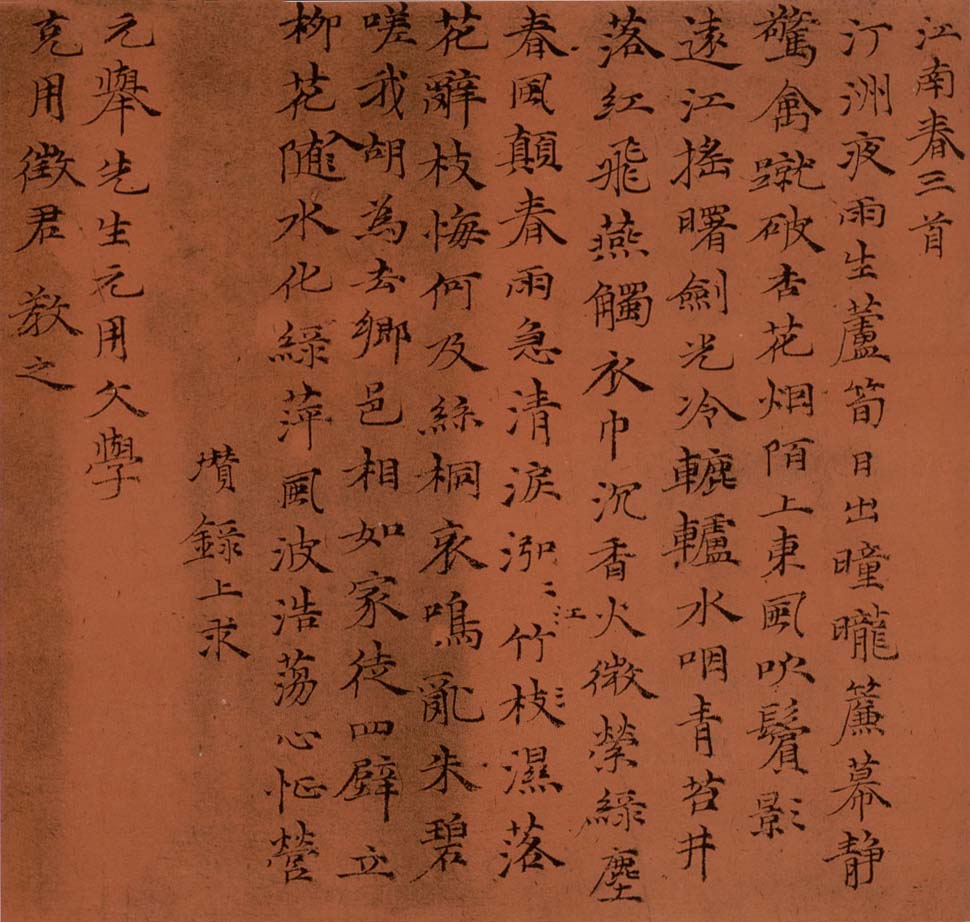 江南春三首
汀洲夜雨生蘆筍日出曈曨簾幕静
驚禽蹴破杏花烟陌上東風吹鬢影
遠江搖曙劍光冷轆轤水咽青苔井
落紅飛燕觸衣巾沉香火微縈綠塵
春風顛春雨急清淚泓〻江竹枝〻濕落
花辭枝悔何及絲桐哀鳴亂朱碧
嗟我胡為去鄉邑相如家徒四壁立
柳花隨水化綠萍風波浩蕩心怔營
瓚錄上求
元舉先生元用文學
克用徵君 教之